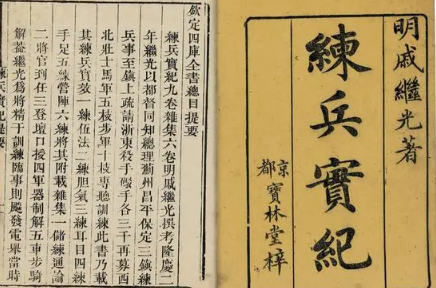 明戚繼光著
練兵實紀
京都寶林堂梓
欽定四庫全書總目提要
練兵實紀九卷雜集六卷明戚繼光撰考隆慶二
年繼光以都督同知總理薊州昌平保定三鎮練
兵事至鎮上疏請浙東殺手礮手各三千再募西
北壯士馬軍五枝步軍十枝專聽訓練此書乃載
其練兵實效一練伍法二練胆氣三練耳目四練
手足五練營陣六練將其附載雜集一儲練通論
二將官到任三登壇口授四軍器制解五車步騎
解葢繼光爲將精于訓練臨事則飈發電舉當時